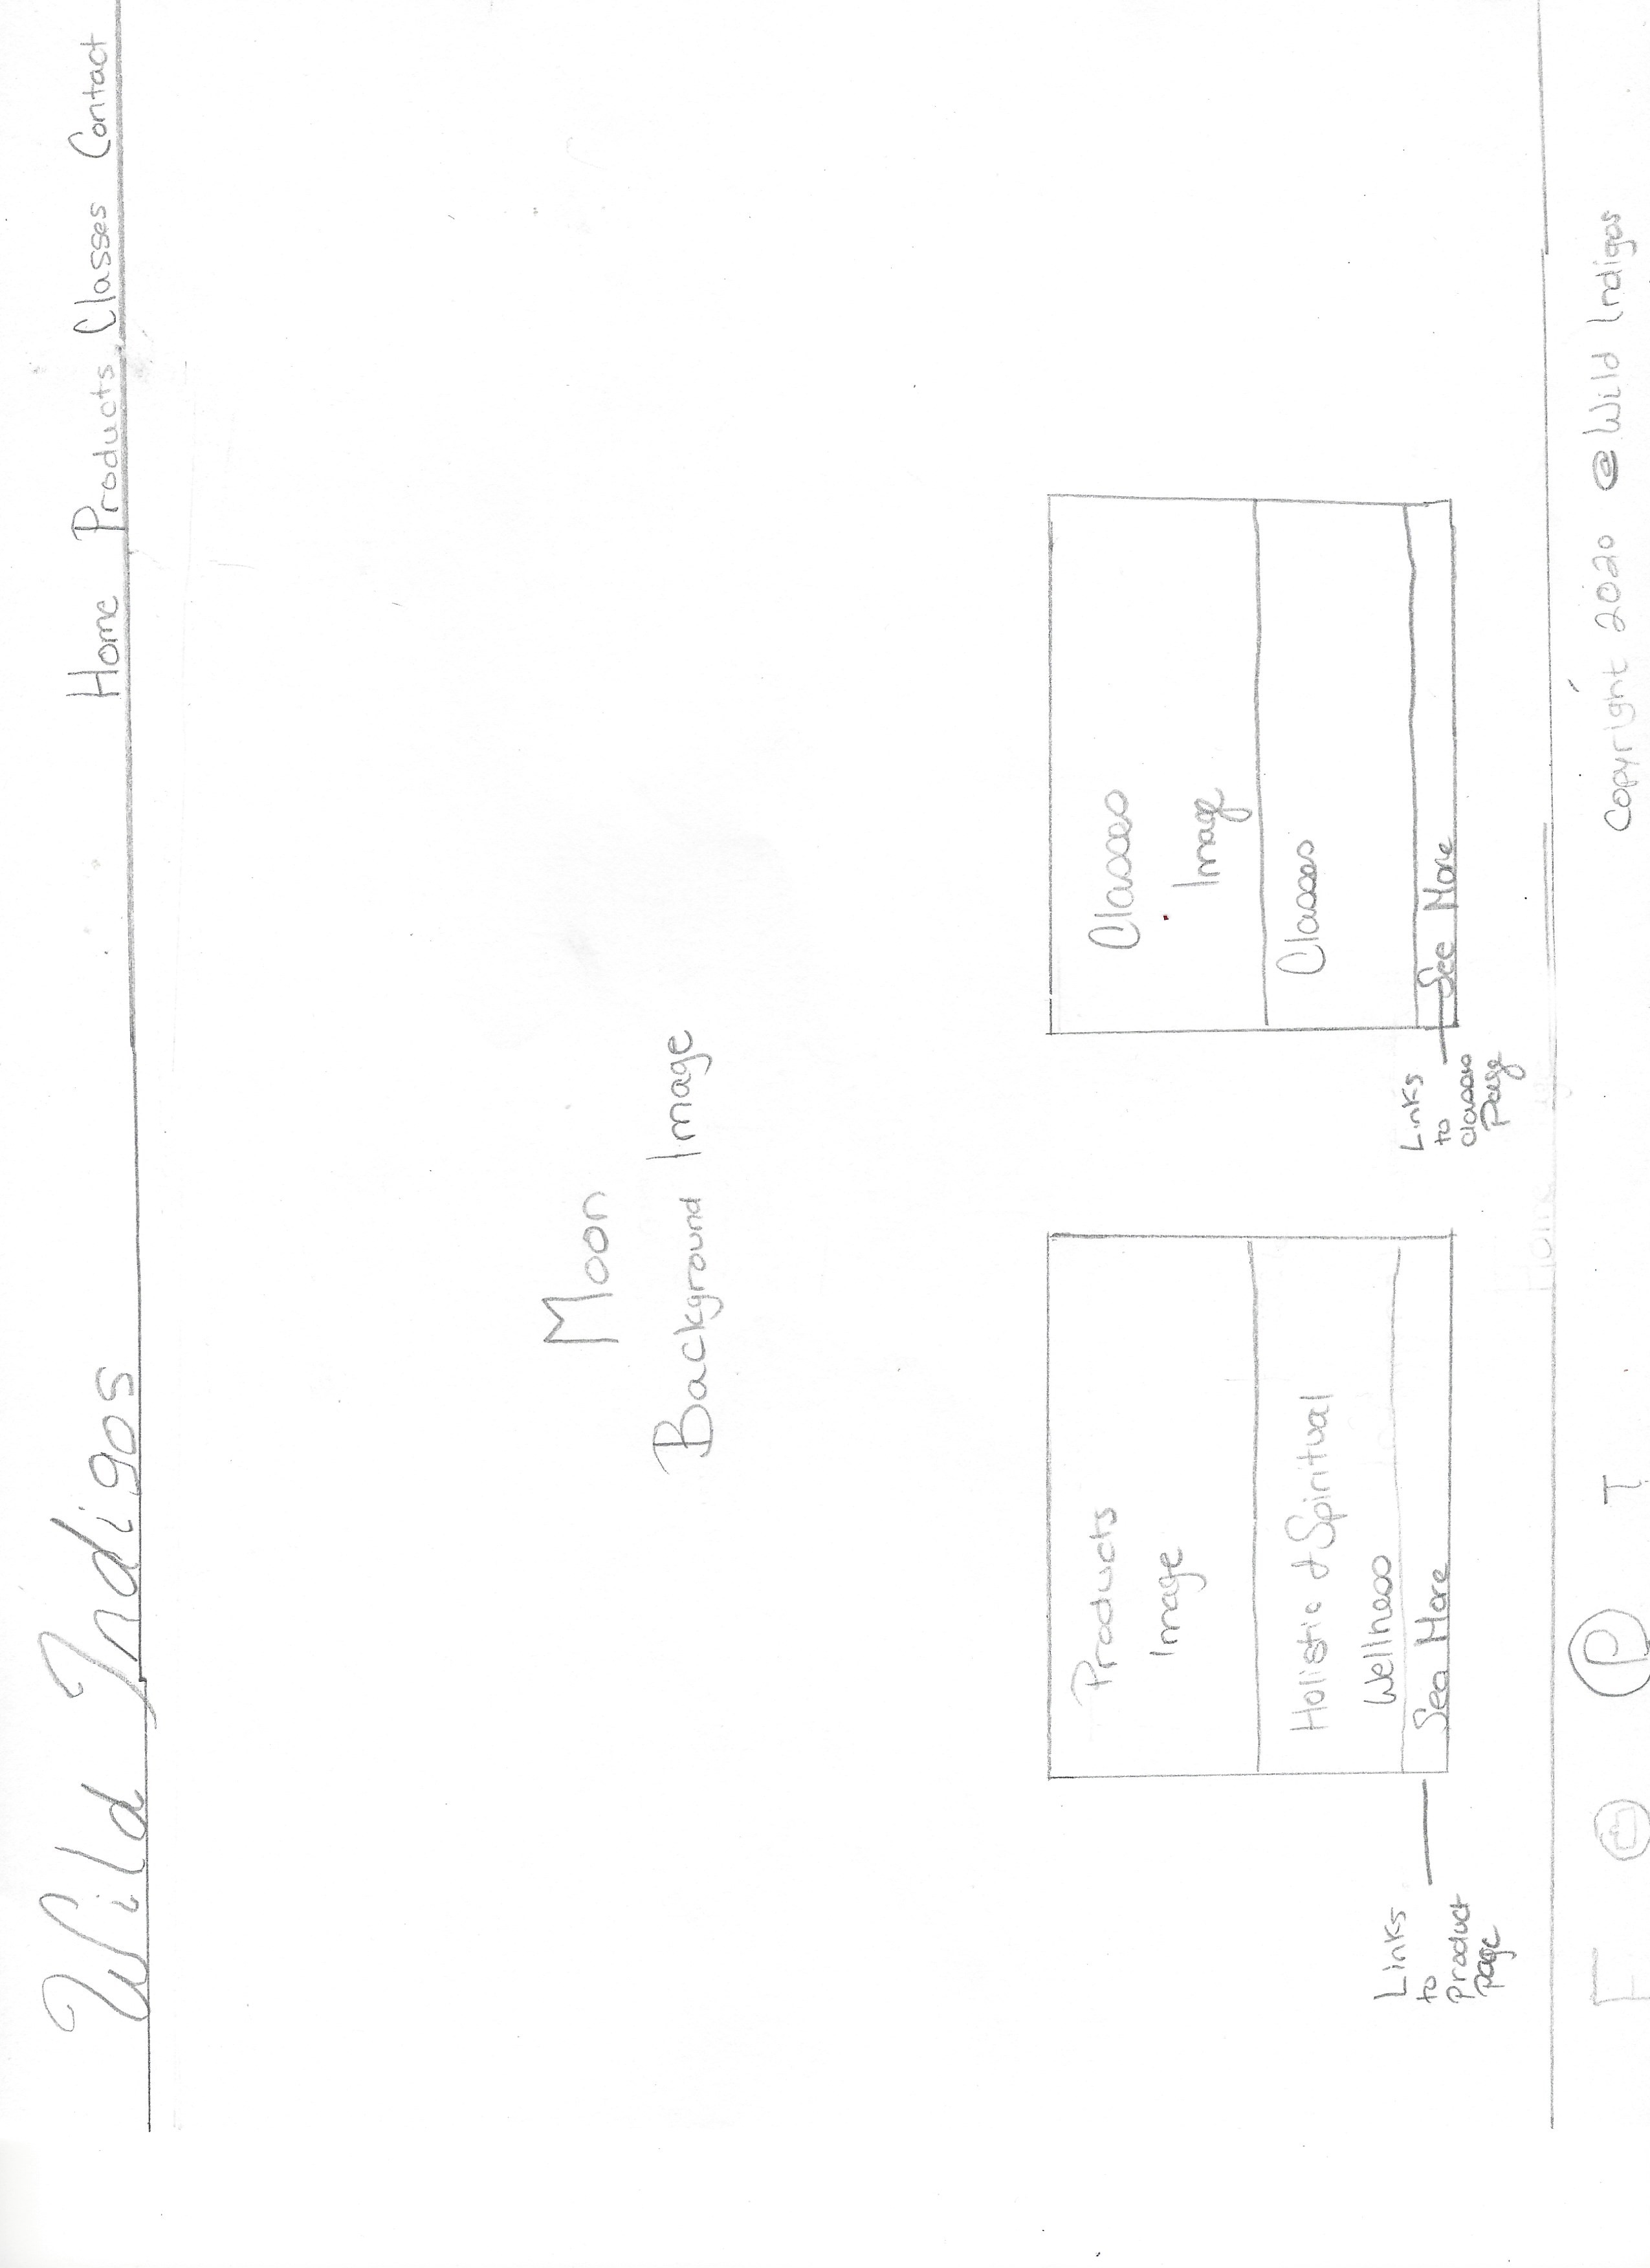 Wild Indigos
Home Products Classes Contact
Moon
Background Image
Products
Image
Holistic & Spiritual
Wellness
See More
Links
to
Product
page
Classes
Image
Classes
See More
Links
to
classes
page
F
P
T
Copyright 2020 @ Wild Indigos